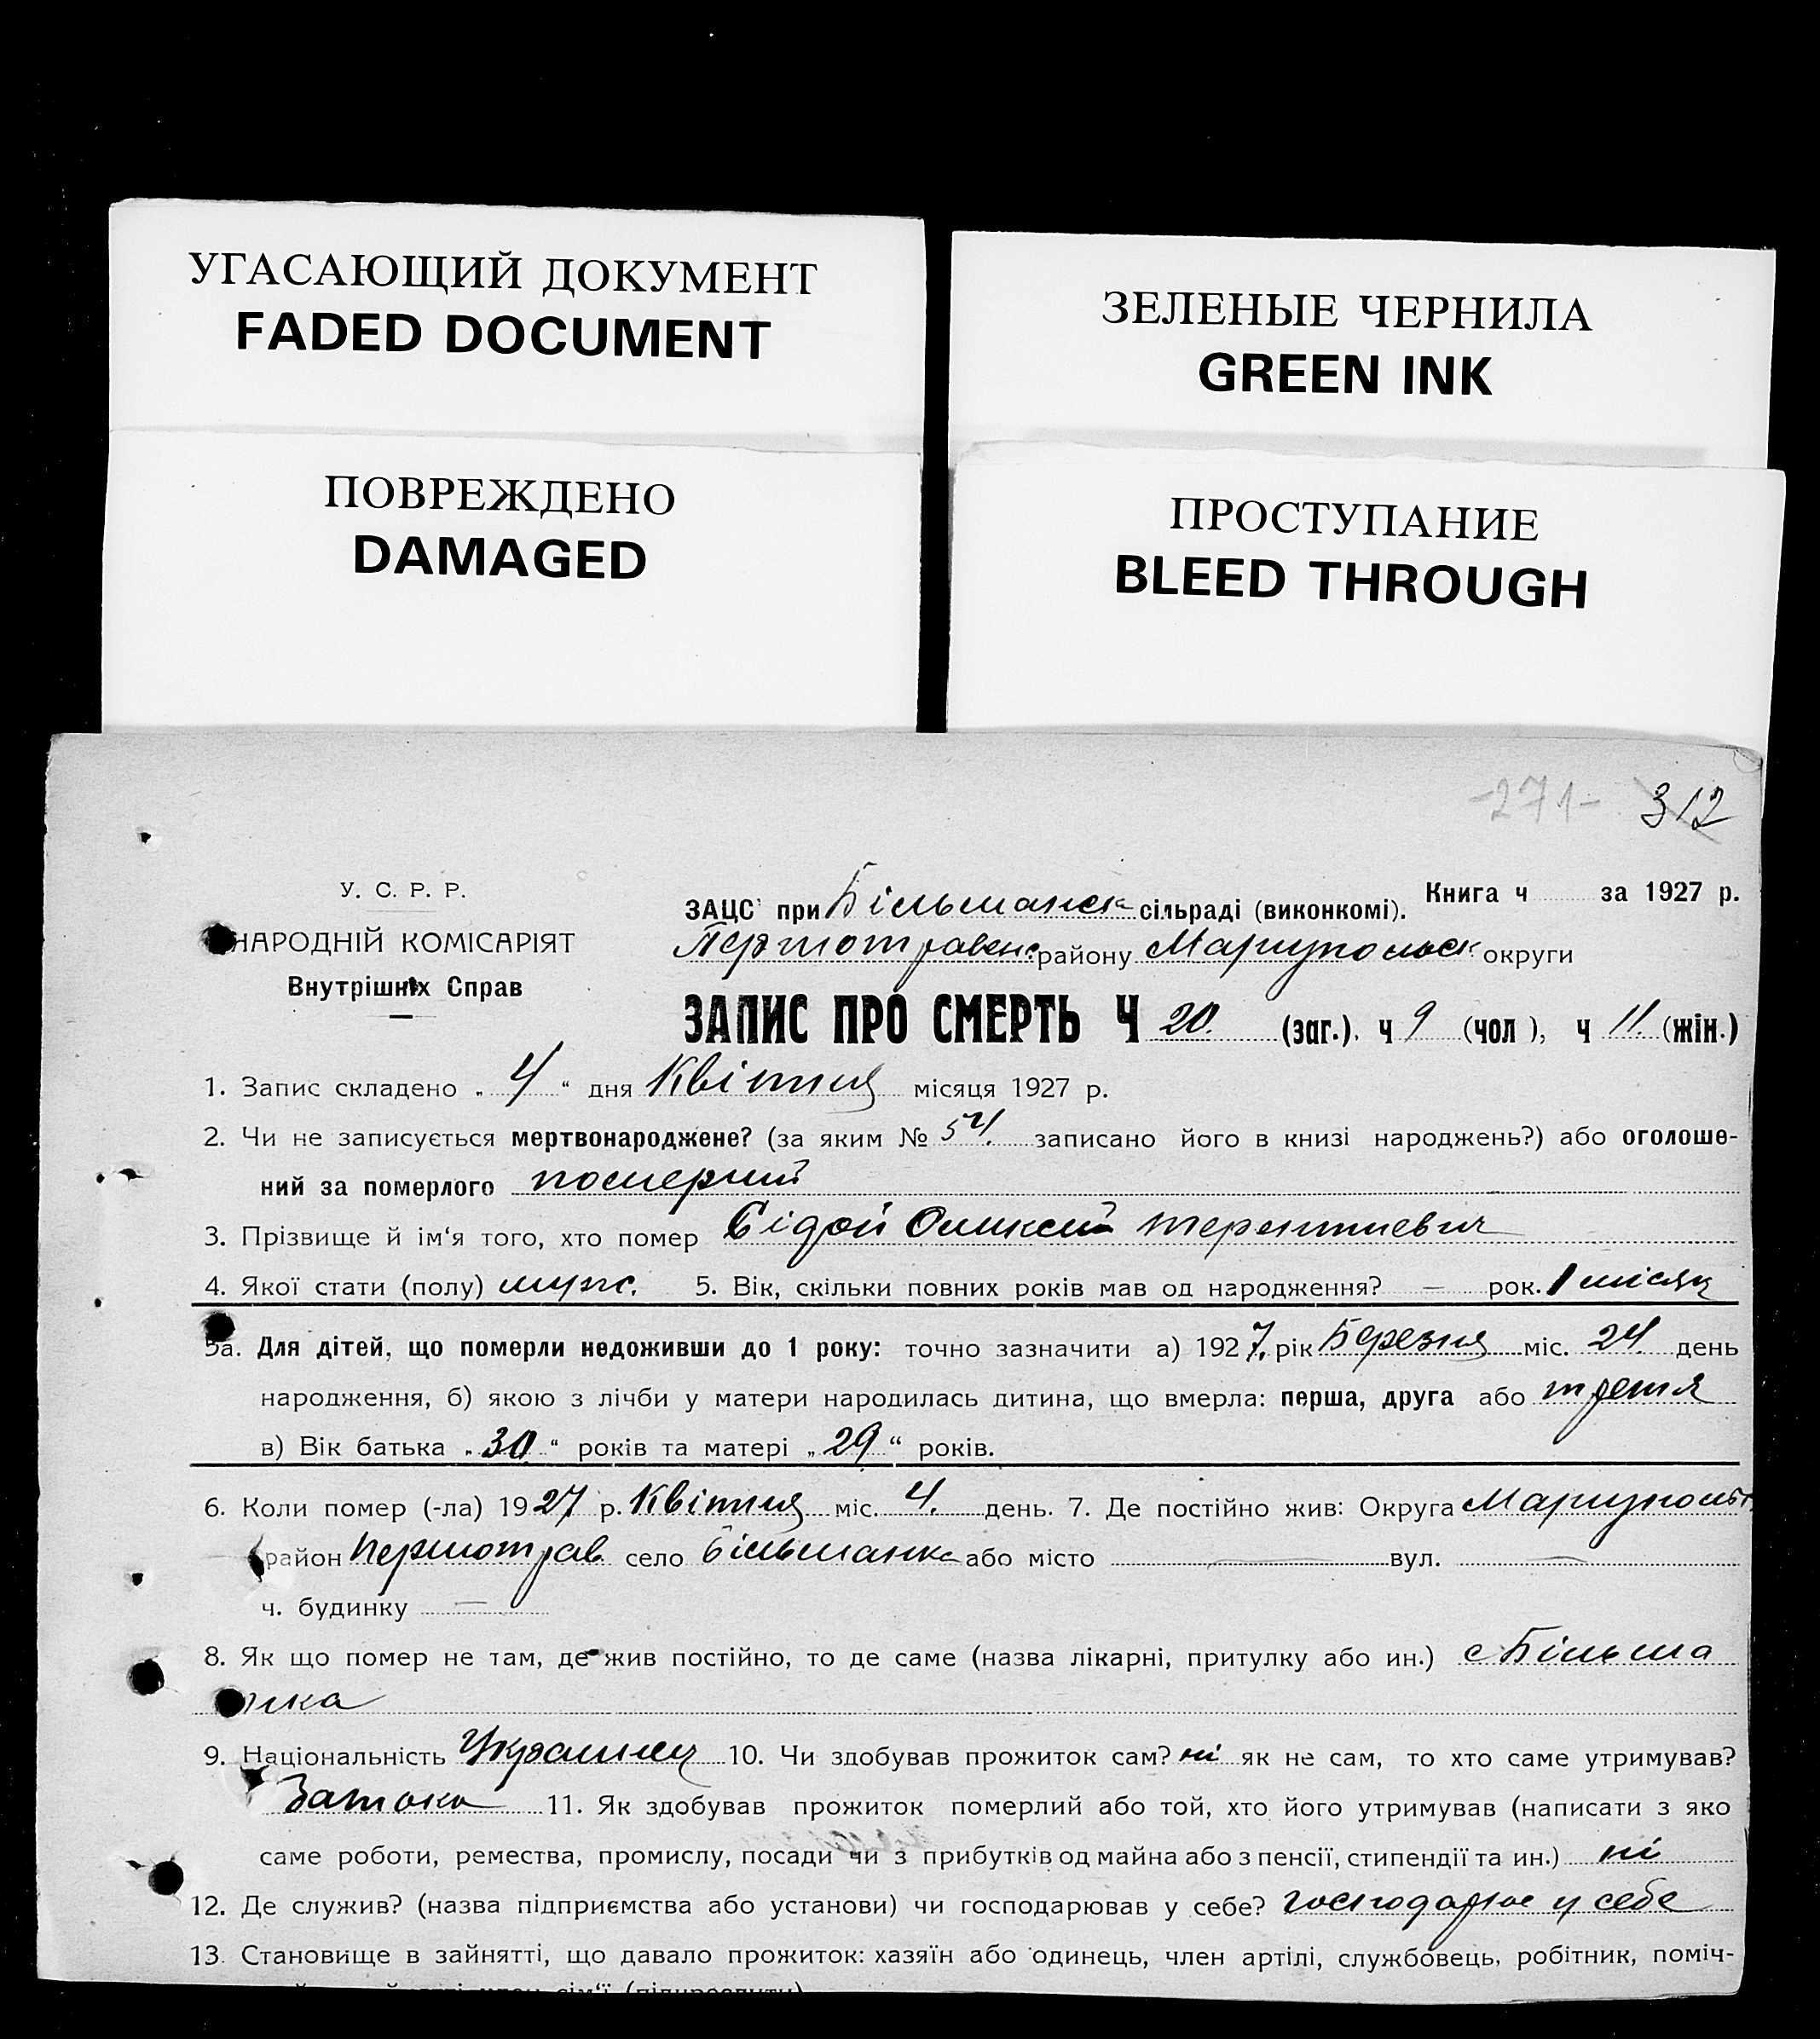 УГАСАЮЩИЙ ДОКУМЕНТ
FADED DOCUMENT
ЗЕЛЕНЫЕ ЧЕРНИЛА
GREEN INK
ПОВРЕЖДЕНО
DAMAGED
ПРОСТУПАНИЕ
BLEED THROUGH
-271- 312
У. С. Р. Р.
НАРОДНІЙ КОМІСАРІЯТ
Внутрішніх Справ
Книга ч за 1927 р.
ЗАЦС при Більманск сільраді (виконкомі).
Першотравен. району Маріупольск округи
ЗАПИС ПРО СМЕРТЬ Ч 20. (заг.). ч 9 (чол ), ч 11. (жін.)
1. Запис складено „ 4 “ дня Квітня місяця 1927 р.
2. Чи не записується мертвонароджене? (за яким № 54. записано його в книзі народжень?) або оголоше-
ний за померлого померший
3. Прізвище й ім‘я того, хто помер Терентиевич
4. Якої стати (полу) муж. 5. Вік, скільки повних років мав од народження? — рок. 1 місяц
5а. Для дітей, що померли недоживши до 1 року: точно зазначити а) 1927. рік Березня міс. 24. день
народження, б) якою з лічби у матери народилась дитина, що вмерла: перша, друга або третя
в) Вік батька „ 30 “ років та матері „ 29 “ років.
6. Коли помер (-ла) 1927 р. Квітня міс. 4. день. 7. Де постійно жив: Округа Маріупольс.
район Першотрав село Більманка або місто — вул. —
ч. будинку —
8. Як що помер не там, де жив постійно, то де саме (назва лікарні, притулку або ин.) с Більма
нка
9. Національність Украинец 10. Чи здобував прожиток сам? ні як не сам, то хто саме утримував?
11. Як здобував прожиток померлий або той, хто його утримував (написати з яко
саме роботи, ремества, промислу, посади чи з прибутків од майна або з пенсії, стипендії та ин.) ні
12. Де служив? (назва підприємства або установи) чи господарював у себе? господарює у себе
13. Становище в зайнятті, що давало прожиток: хазяїн або одинець, член артілі, службовець, робітник, поміч-